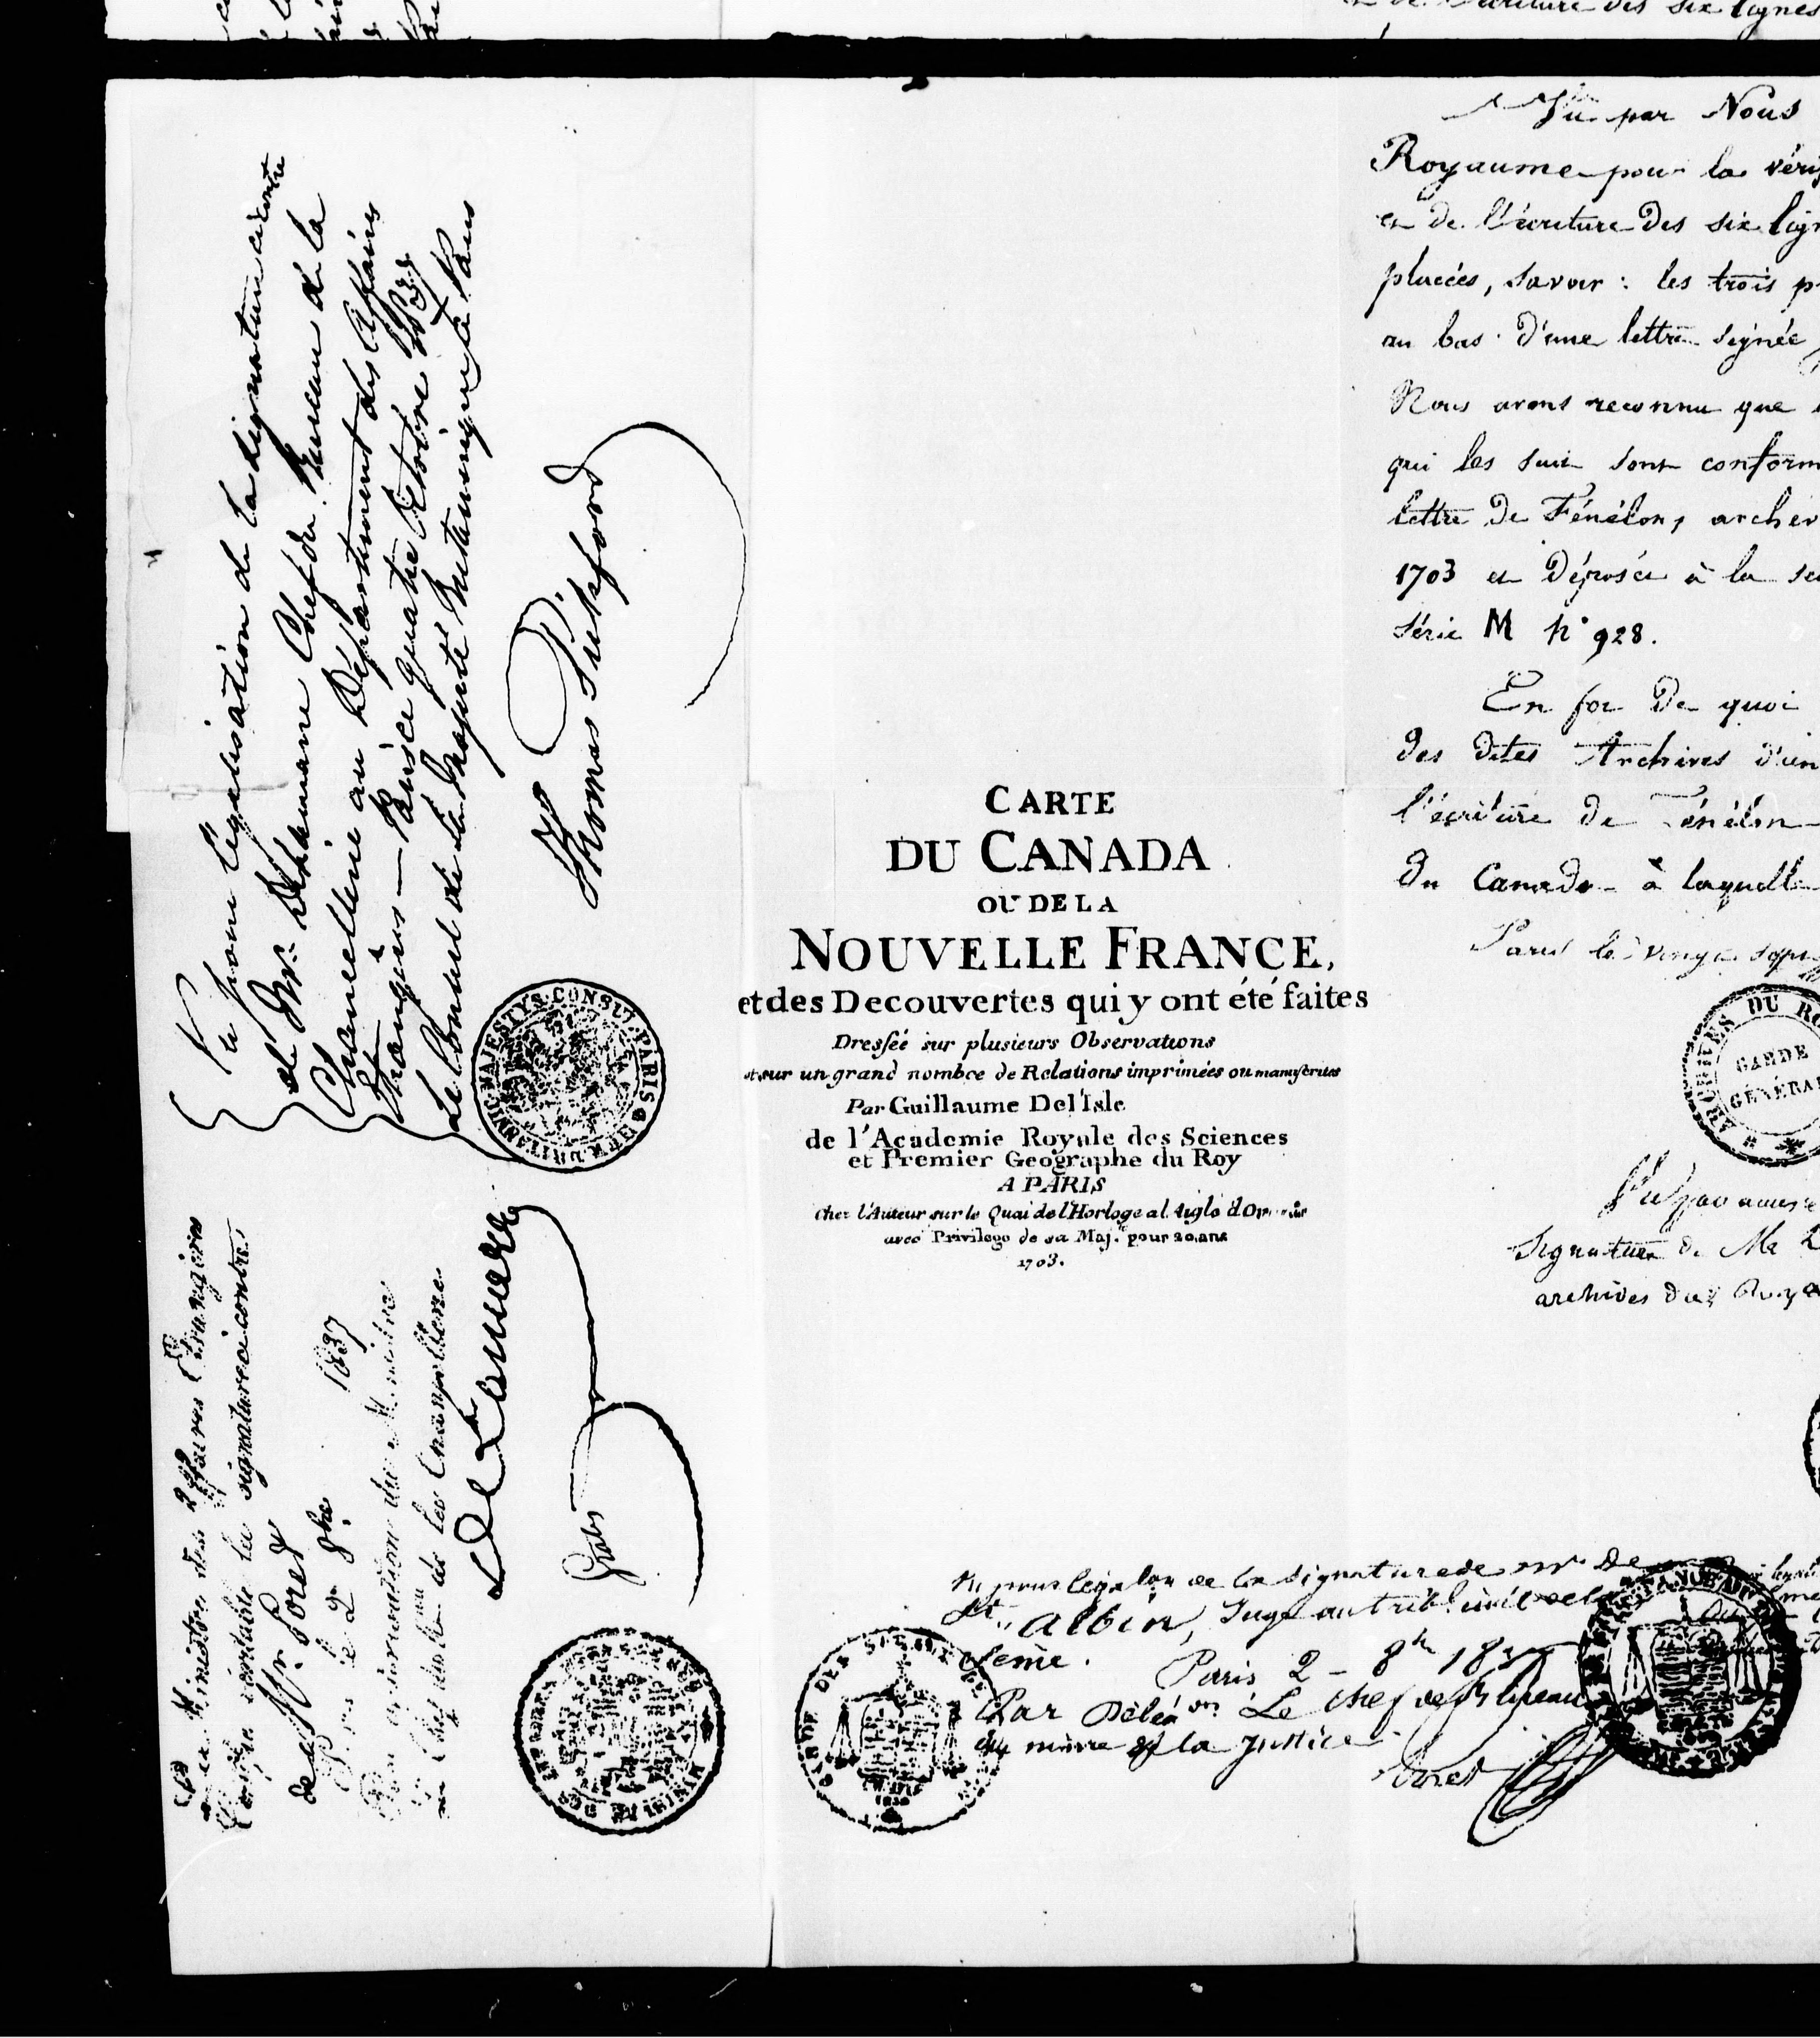 de l'écriture des six lignes
Vu pour légalisation de la signature ci contre
de Mr. Dehaumane Chef du Bureau de la
Chancellerie au Département des Affaires
Etrangères — Paris ce quatre Octobre 1837
Le Consul de Sa Majesté Britannique à Paris
Thomas Pickford
HER BRITANNIC MAJESTYS CONSUL PARIS
Le Ministre des Affaires Etrangères
Certifie véritable la signature ci contre
de Mr. Poret
Paris le 2 8bre 1837
Par autorisation du Ministre
Le Chef du bureau de la Chancellerie
Gratis
CARTE
DU CANADA
OU DE LA
NOUVELLE FRANCE,
et des Decouvertes qui y ont été faites
Dressée sur plusieurs Observations
et sur un grand nombre de Relations imprimées ou manuscrites
Par Guillaume Del'Isle
de l'Academie Royale des Sciences
et Premier Geographe du Roy
A PARIS
Chez l'Auteur sur le Quai de l'Horloge a l'Aigle d'Or
avec Privilege de sa Maj.te pour 20. ans
1703.
Vu pour légalon de la signature de Mr de
St. Albin, Juge au tribl. civil de la
Seine.
Paris 2 - 8bre 183
Par Délégon Le Chef de Bureau
du mtère de la Justice
Poret
GARDE DES SCEAUX
1830
Vu par Nous
Royaume pour la véri
et de l'écriture des six lign
placées, savoir : les trois p
au bas d'une lettre signée
Nous avons reconnu que
qui les suit sont conform
lettre de Fénélon, archev
1703 et déposée à la se
Série M n° 928.
En foi de quoi
des dites Archives d'un
l'écriture de Fénélon
du Canada à laquelle
Paris le vingt sept
ARCHIVES DU RO
GARDE
GÉNÉRAL
Signature de Mr
archives du Roya